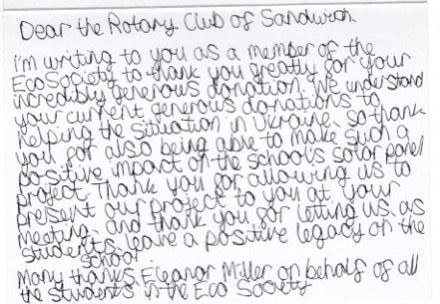 Dear the Rotary Club of Sandwich
i'm writing to you as a member of the
Eco Society to thank you greatly for your
incredibly generous donation. We understand
your current generous donations to
helping the situation in Ukraine, so thank
you for also being able to make such a
positive impact on the school's solar panel
project. Thank you for allowing us to
present our project to you at your
meeting, and thank you for letting us, as
students, leave a positive legacy on the
school.
Many thanks, Eleanor Miller on behalf of all
the students in the Eco Society